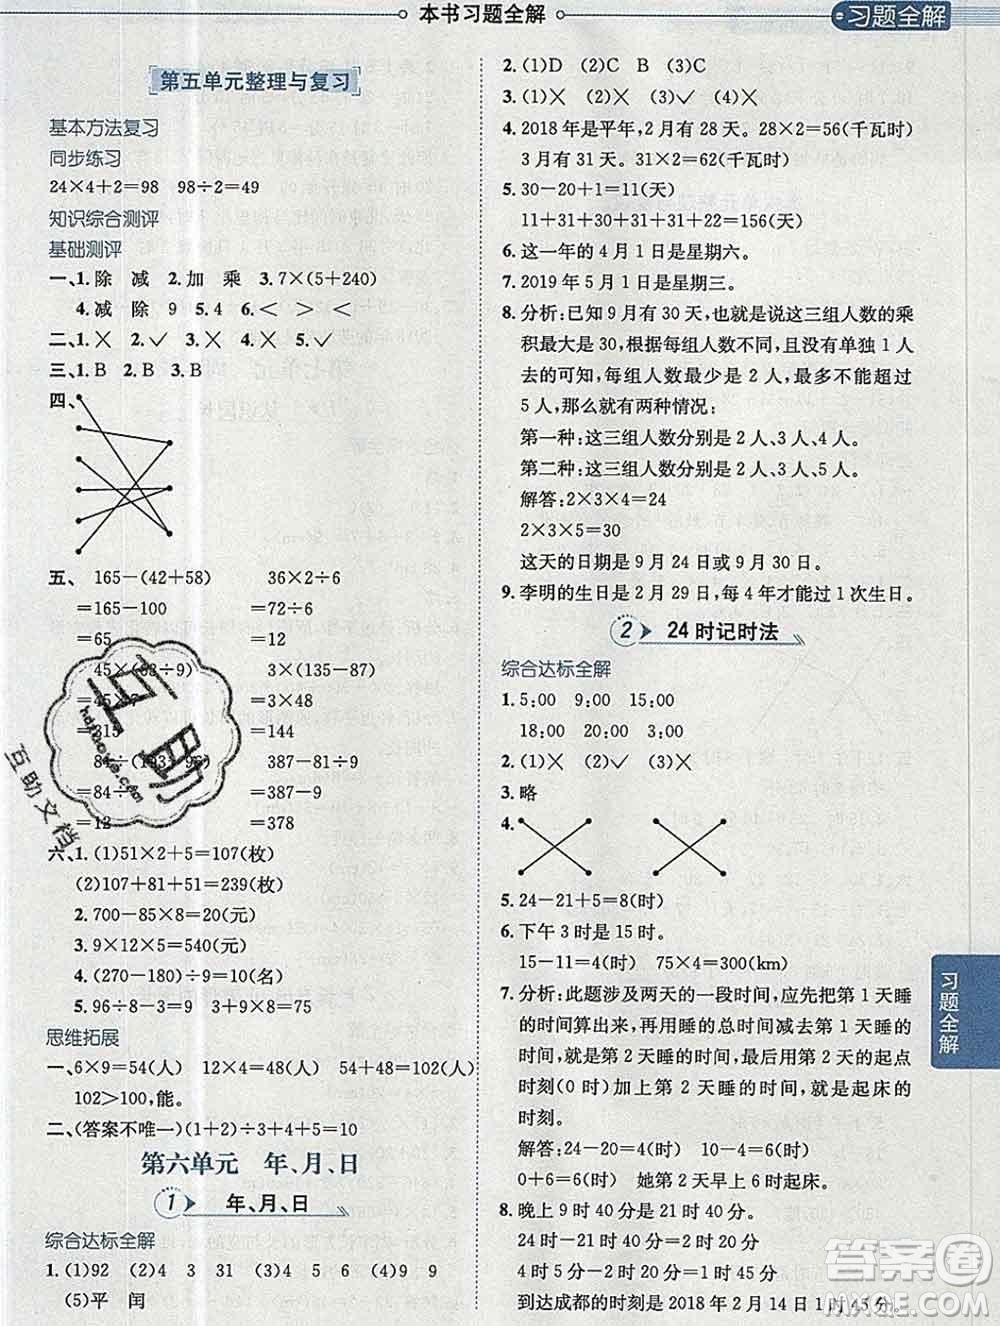 本书习题全解
习题全解
第五单元整理与复习
基本方法复习
同步练习
24×4+2=98 98÷2=49
知识综合测评
基础测评
一、1.除 减 2.加 乘 3.7×(5+240)
4.减 除 9 5.4 6.< > <
二、1.× 2.✓ 3.× 4.✓ 5.×
三、1.B 2.B 3.B
四、
五、 165-(42+58) 36×2÷6
=165-100 =72÷6
=65 =12
45×(63÷9) 3×(135-87)
=45×7 =3×48
=315 =144
387-81÷9
=84÷ =387-9
=12 =378
六、1.(1)51×2+5=107(枚)
(2)107+81+51=239(枚)
2.700-85×8=20(元)
3.9×12×5=540(元)
4.(270-180)÷9=10(名)
5.96÷8-3 3+9×8=75
思维拓展
一、6×9=54(人) 12×4=48(人) 54+48=102(人)
102>100,能。
二、(答案不唯一)(1+2)÷3+4+5=10
第六单元 年、月、日
1 年、月、日
综合达标全解
1.(1)92 (2)4 3 31 (3)5 (4)9 9
(5)平 闰
2.(1)D (2)C B (3)C
3.(1)× (2)× (3)✓ (4)×
4.2018年是平年,2月有28天。28×2=56(千瓦时)
3月有31天。31×2=62(千瓦时)
5.30-20+1=11(天)
11+31+30+31+31+22=156(天)
6.这一年的4月1日是星期六。
7.2019年5月1日是星期三。
8.分析:已知9月有30天,也就是说这三组人数的乘
积最大是30。三组人数不同,且没有单独1人
去的可知,每组人数最少是2人,最多不能超过
5人,那么就有两种情况:
第一种:这三组人数分别是2人、3人、4人。
第二种:这三组人数分别是2人、3人、5人。
解答:2×3×4=24
2×3×5=30
这天的日期是9月24日或9月30日。
9.李明的生日是2月29日,每4年才能过1次生日。
2 24时记时法
综合达标全解
1.5:00 9:00 15:00
18:00 20:00 3:00
2.(1)× (2)✓ (3)×
3.略
4.
5.24-21+5=8(时)
6.下午3时是15时。
15-11=4(时) 75×4=300(km)
7.分析:此题涉及两天的一段时间,应先把第1天睡
的时间算出来,再用睡的总时间减去第1天睡
的时间,就是第2天睡的时间,用第2天的起点
时刻(0时)加上第2天睡的时间,就是起床的
时刻。
解答:24-20=4(时) 10-4=6(时)
0+6=6(时) 她第2天早上6时起床。
8.晚上9时40分是21时40分。
24时-21时40分=2时20分
4时5分-2时20分=1时45分
到达成都的时刻是2018年2月14日1时45分。
习题全解
互助
hdzuoye.com
互助文档
答案圈
MXQE.COM